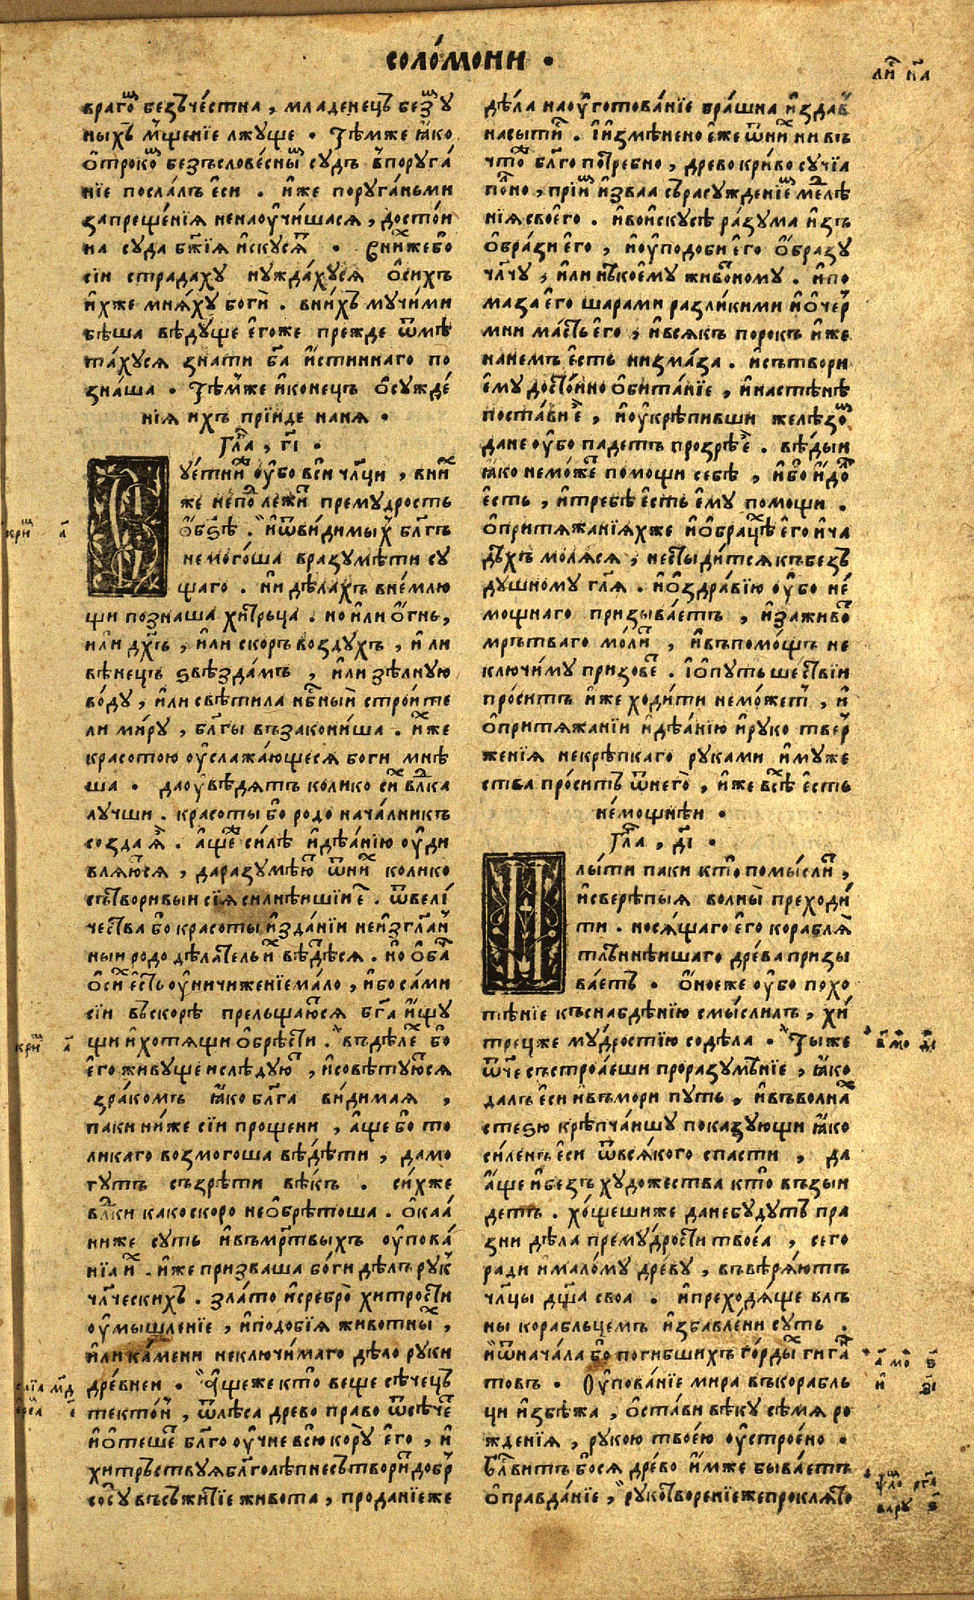 соло́мони ·
ли҃ н҃а
враго̑ безъче́стна , младенецъ без̾ у
ных̾ мще́нїе лжуще · Тѣ́мже ꙗ҆́ко
ѻ҆́троко̑ безъслове́сны̑ су́дъ в̾поруга́
нїе посла́лъ є҆си . и҆́же поруга́ньми
запреще́нїѧ ненаоу҆чи́шасѧ , досто́и
на суда бж҃їѧ и҆скусѧ̑ · Ѡни́хжебо
сїи страдаху нужда́хусѧ ѻ҆сихъ
и҆хже мнѧ́ху боги . вни́хъ му́чими
бѣ́ша вѣ́дуще є҆го́же прежде ѿмѣ
та́хусѧ знати бг҃а и҆́стиннаго по
зна́ша . Тѣ́мже и҆конецъ ѻ҆сужде́
нїѧ ихъ прїи́де наня ·
Гл҃а , гі҃ ·
Суетни̑ оу҆бо вси чл҃цы , вни̑
же непо̑лежи̑ премудрость
ѻ҆́бѕѣ . и҆ѿви́димых̾ бл҃гъ
немого́ша вразумѣ́ти су
щаго . ни дѣлахъ внемлю
щи познаша хитрьца . но и҆ли ѻ҆́гнь ,
и҆ли дх҃ъ , и҆́ли скоръ воздухъ , и҆ ли
вѣнецъ ѕвѣзда́мъ , и҆́ли зѣ́лную
во́ду , и҆́ли свѣтила нб҃ныѝ строите
ли миру , бл҃гы възакони́ша . и҆́хже
красотою оу҆слажа́ющесѧ боги мнѣ
ша · даоу҆вѣ́дѧтъ колико си́х̾ вл҃ка
лучши . красоты́ бо родо нача́лникъ
созда ѧ҆̀ . а҆́ще̑ си́лѣ и҆дѣѧ́нїю оу҆ди
влѧю́сѧ , даразумѣю̑ ѿни̑ колико
сътворивыи сїѧ силнѣишїи є҆̑ . ѿвелі́
чества бо красоты́ и҆зда́нїи неи҆зг҃ла́н
ныи родо дѣлательн̾ вѣдѣсѧ . но ѻ҆ба̑
ѻ҆си̑ є҆́сть оу҆ничиже́нїе мало , и҆́бо са́ми
сїи въскорѣ прельща́юсѧ бг҃а и҆щу
щи и҆хотѧщи ѻ҆брѣ́сти . въдѣле̑ бо
є҆го̀ живуще и҆слѣдую̑ , и҆совѣтую̑сѧ
зра́комъ ꙗ҆ко бл҃га ви́димаѧ ,
па́ки ни́же сїи проще́ни , а҆́ще бо то
ликаго возмогоша вѣ́дѣти , да мо
гутъ съзрѣти вѣкъ . си́хже
вл҃ки какоско́ро неѻ҆брѣтоша . Ѻ҆каѧ́
ниже суть и҆въмр҃твыхъ оу҆пова́
нїѧ и̑ . и҆же призваша бо́ги дѣлъ рук̾
чл҃ческих̾ . зла́то и҆сребро̀ хитрости
оу҆мышле́нїе , и҆подобїѧ живо́тны̑ ,
и҆́ли ка́мени неключи́маго дѣ́ло руки
дре́внеи . А҆щеже кто̀ веще сѣчецъ
текто́н̾ , ѿлѣ́са древо право ѿсѣче̑
и҆ѻ҆теше̑ бл҃го оу҆чне всю кору̀ є҆го , и҆
хитрьствуѧ бл҃голѣ́пне сътвори̑ добр̾
сосу̀ въсъжи́тїе живота , проданїе же
дѣ́ла наоу҆готова́нїе вра́шна и҆здав̾
насыти̑ . І҆и҆змѣ́нено є҆же ѿни̑ ни въ
что̀ бл҃го потребно , древо кри́во сучїа
по́лно , прїи̑ и҆звала съразсужде́нїе̑ ме́лѣ
нїѧ своего̀ . и҆вои҆скусѣ ра́зума и҆зъ
ѻ҆бра́зи є҆го , и҆оу҆подоби є҆го ѻ҆́бразу
чл҃чу , и҆ли нѣ́коему живо́ному . и҆по
маза є҆го шарами различкими и҆ѻ҆чер̾
мни ма́сть є҆го , и҆всѧкъ порокъ и҆же
нанемъ є҆сть низма́за . и҆сътвори
є҆му досто́йно ѻ҆бита́нїе , и҆настѣ́нѣ
поста́ви є҆̑ , и҆оу҆крѣпивши желѣ́зо̑
дане оу҆бо падетъ прозрѣ̑ . вѣ́дыи
ꙗ҆ко немо́же̑ помощи себѣ , и҆́бо и҆́до̑
є҆сть , и҆требѣ є҆сть є҆му помощи .
ѻ҆притѧжа́нїихже и҆ѻ҆браце̑ є҆го и҆ча
дѣхъ молѧсѧ , несты́дитсѧ къбезъ
душному гл҃ѧ . и҆ѻ҆здра́вїю оу҆бо не́
мощнаго призыва́етъ , и҆заживо̑
мрътваго мо́ли̑ , и҆въпомо́щъ не
ключи́му призове̑ . І҆ѻ҆путь шествїи
про́ситъ и҆же ходи́ти немо́жет̾ , и҆
ѻ҆притѧжа́нїи и҆дѣѧ́нїю и҆руко твер̾
женїѧ некрѣпкаго руками и҆муже
ства про́ситъ ѿнего̀ , и҆же все̑ є҆сть
не́мощнѣи ·
Гл҃а , ді҃ ·
Плы́ти паки кто̀ помы́сли̑ ,
и҆сверѣ́пыѧ волны̀ преходи́
ти . носѧ́щаго є҆го кораблѧ̀
тлѣннѣишаго дре́ва призы
ва́етъ . Ѻ҆ноеже оу҆бо похо
тѣнїе къснабдѣнїю смы́слилъ , хи
трецже му́дростїю содѣла · Ты́же
ѿч҃е състрои́еши проразумѣ́нїе , ꙗ҆ко
далъ є҆си и҆въмори путь , и҆въволна̑
стезю крѣ́пчаишу показующи ꙗ҆ко
си́ленъ є҆си ѿвсѧ́кого спасти , да
а҆́ще и҆безъ худо́жества кто̀ възыи
детъ . хо́щешиже да небудутъ пра
зни дѣ́ла прему́дрости твоеа , сего
ради и҆мало́му дре́ву , въвѣрѧ́ютъ
чл҃цы дш҃а своа . и҆преходѧ́ще влъ
ны корабльцемъ и҆збавле́ни суть .
и҆ѿнача́ла бо погибшихъ го́рды̑ гига̑
товъ · Оу҆пова́нїе мира въкорабль
ци и҆збѣжа , ѻ҆ста́ви вѣ́ку сѣ́мѧ ро
жде́нїѧ , руко́ю твое́ю оу҆строе́но ·
Бл҃ви́тъ бо́сѧ дре́во и҆́мже быва́етъ
ѻ҆правда́нїе , рукотворе́нїежепроклѧ́то